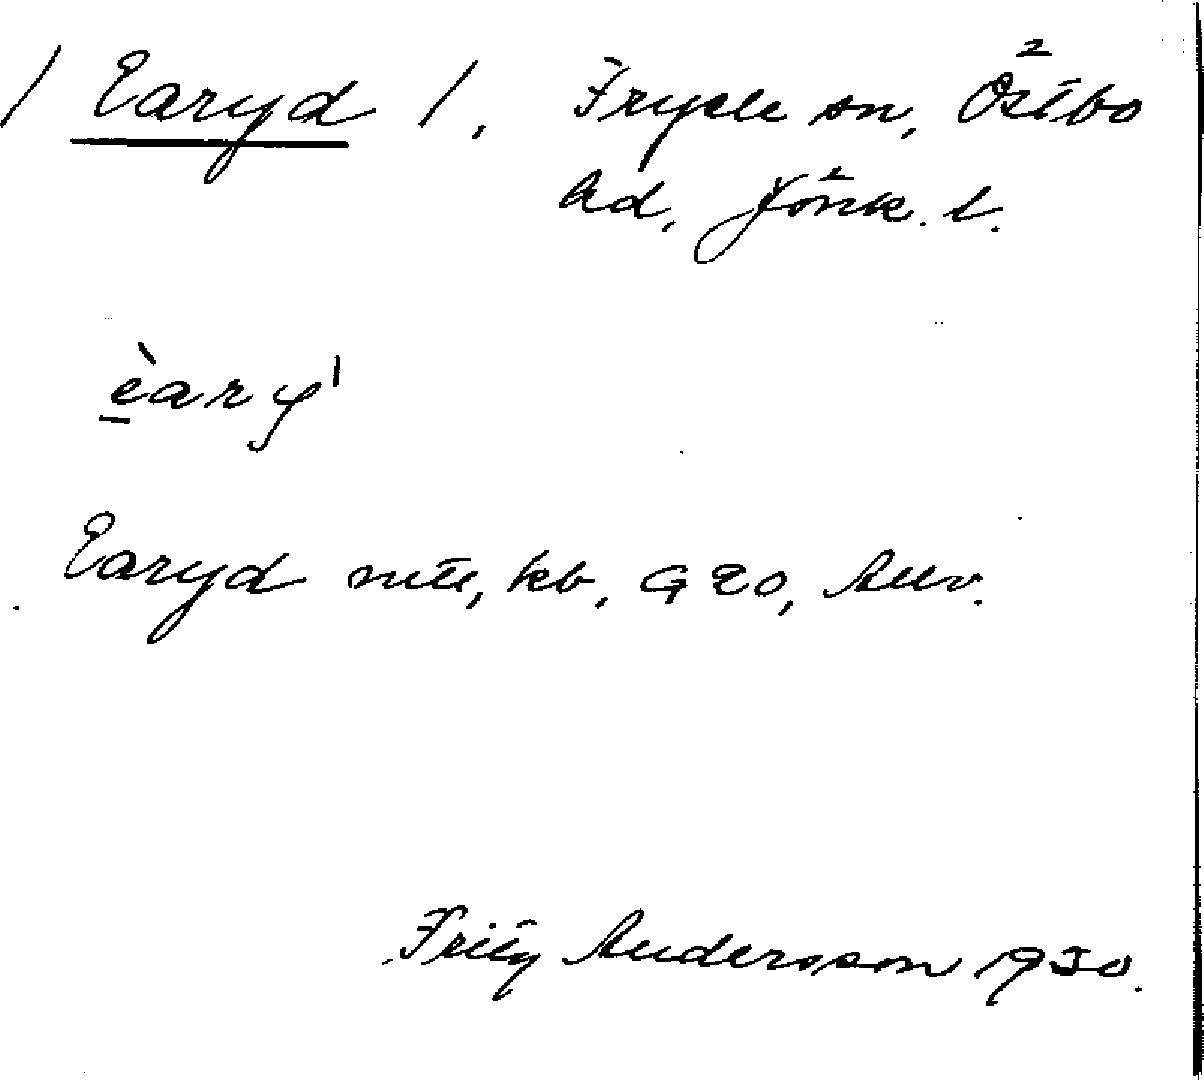 / Earyd /, Fryele sn, Östbo
hd, Jönk. l.
èary'
Earyd mtl, kb, G 20, Anv.
Fritz Andersson 1930.